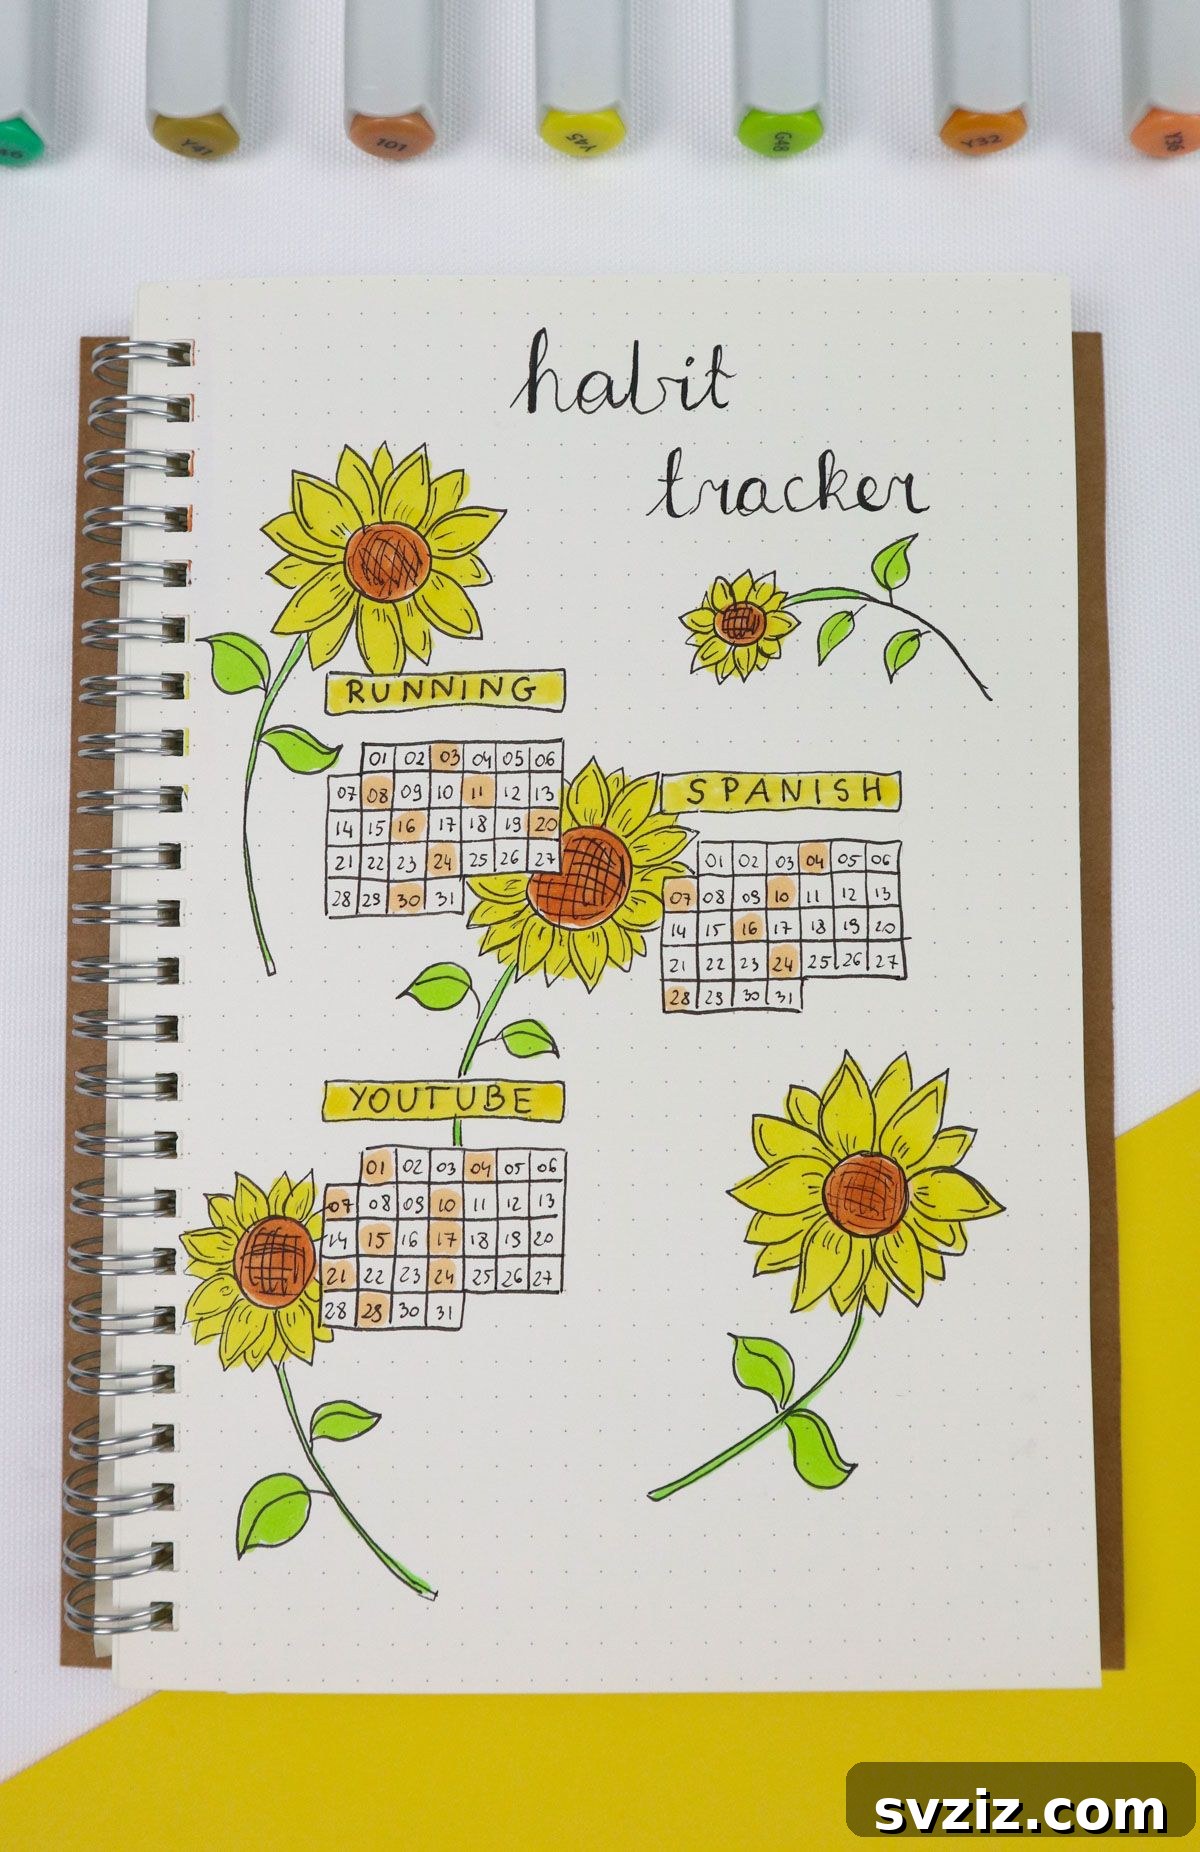 Y41
101
Y45
G48
Y32
Y36
habit
tracker
RUNNING
01 02 03 04 05 06
07 08 09 10 11 12 13
14 15 16 17 18 19 20
21 22 23 24 25 26 27
28 29 30 31
SPANISH
01 02 03 04 05 06
07 08 09 10 11 12 13
14 15 16 17 18 19 20
21 22 23 24 25 26 27
28 29 30 31
YOUTUBE
01 02 03 04 05 06
07 08 09 10 11 12 13
14 15 16 17 18 19 20
21 22 23 24 25 26 27
28 29 30 31
svziz.com